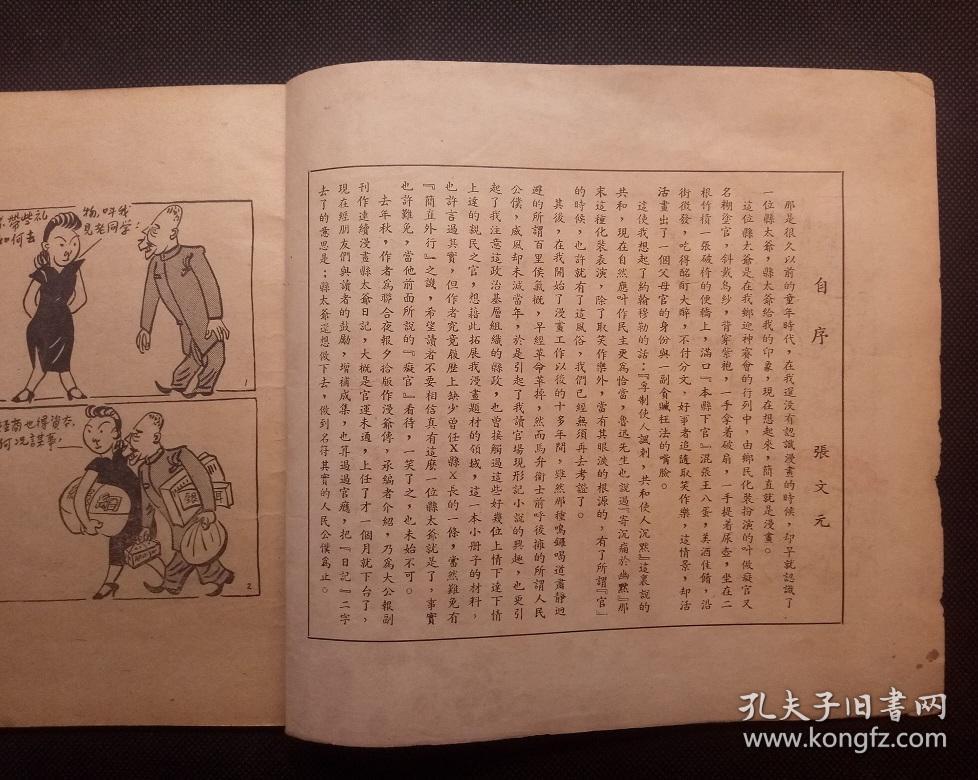 自序　張文元
那是很久以前的童年時代，在我還没有認識漫畫的時候，却早就認識了
一位縣太爺，縣太爺給我的印象，現在想起來，簡直就是漫畫。
這位縣太爺是在我鄉迎神賽會的行列中，由鄉民化裝扮演的叫做癡官又
名糊塗官，斜戴烏紗，背穿紫袍，一手拿着破扇，一手提着尿壺，坐在二
根竹槓一張破椅的便轎上，滿口『本縣下官』混張王八蛋，美酒佳餚，沿
街徵發，吃得酩酊大醉，不付分文，好事者追隨取笑作樂，這情景，却活
活畫出了一個父母官的身份與一副貪贓枉法的嘴臉。
這使我想起了約翰穆勒的話：『專制使人諷刺，共和使人沉默』這裏說的
共和，現在自然應叫作民主更爲恰當，魯迅先生也說過『寄沉痛於幽默』那
末這種化裝表演，除了取笑作樂外，當有其眼淚的根源的，有了所謂『官』
的時候，也許就有了這風俗，我們已經無須再去考證了。
其後，在我開始了漫畫工作以後的十多年間，雖然那種鳴鑼喝道肅靜迴
避的所謂百里侯氣概，早經革命革掉，然而馬弁衛士前呼後擁的所謂人民
公僕，威風却未減當年，於是引起了我讀官場現形記小說的興趣，也更引
起了我注意這政治基層組織的縣政，也曾接觸過這些好幾位上情下達下情
上達的親民之官，想藉此拓展我漫畫題材的領域，這一本小册子的材料，
也許言過其實，但作者究竟履歷上缺少曾任X縣X長的一條，當然難免有
『簡直外行』之譏，希望讀者不要相信真有這麼一位縣太爺就是了，事實
也許難免，當他前面所說的『癡官』看待，一笑了之，也未始不可。
去年秋，作者爲聯合夜報夕拾版作漫爺傳，承編者介紹，乃爲大公報副
刊作連續漫畫縣太爺日記，大概是官運未通，上任了才一個月就下台了，
現在經朋友們與讀者的鼓勵，增補成集，也算過過官癮，把『日記』二字
去了的意思是：縣太爺還想做下去，做到名符其實的人民公僕爲止。
物，呀我
見老同學：
帶些禮
如何去
1
商也得資本，
何况謀事，
2
孔夫子旧书网
www.kongfz.com